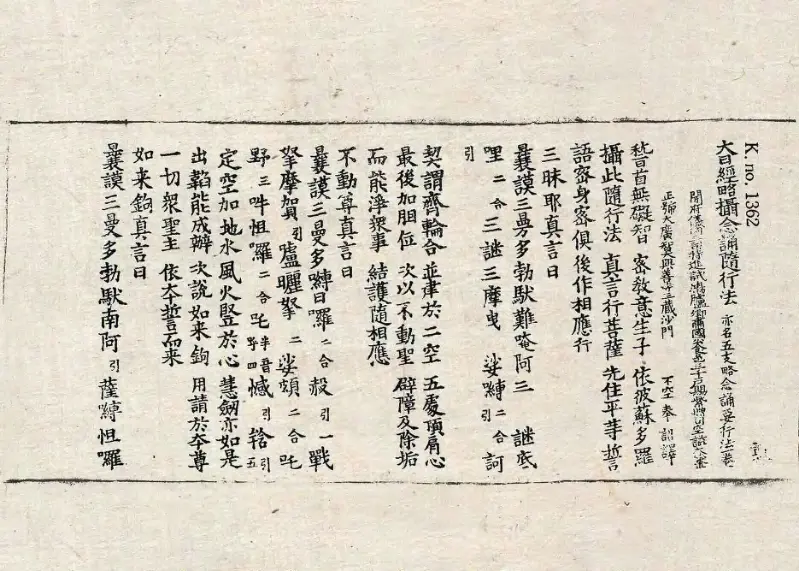 K. no. 1362
大日經略攝念誦隨行法 亦名五支略念誦要行法 壹卷
開府儀同三司特進試鴻臚卿肅國公食邑三千戶賜紫贈司空謚大鑒
正號大廣智大興善寺三藏沙門 不空 奉 詔譯
稽首無礙智 密教意生子 依彼蘇多羅
攝此隨行法 真言行菩薩 先住平等誓
語密身密俱 後作相應行
三昧耶真言曰
曩謨三曼多勃馱難唵阿三 謎底
哩 二合 三謎三摩曳 娑嚩 二合引 訶
引
契謂齊輪合 並建於二空 五處頂肩心
最後加胭位 次以不動聖 辟障及除垢
而能淨衆事 結護隨相應
不動尊真言曰
曩謨三曼多嚩日囉 二合 赧 引一 戰
拏摩賀 引 嚧曬拏 二 娑頗 二合 吒
野 三 吽怛囉 二合 吒 半音四 憾 引 引五
定空加地水 風火豎於心 慧劒亦如是
出鞱能成辦 次說如来鉤 用請於夲尊
一切衆聖主 依夲誓而来
如来鉤真言曰
曩謨三曼多勃馱南阿 引 薩嚩怛囉